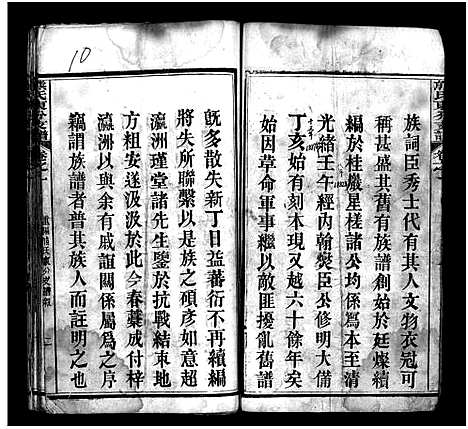 族詞臣秀士代有其人文物衣冠可
稱甚盛其舊有族譜創始於廷燦續
編於桂巖星槎諸公均係爲本至
光緒壬午經內翰爕臣公修明大備
丁亥始有刻本現又越六十餘年矣
始因革命軍事繼以敵匪擾亂舊譜
旣多散失新丁日益蕃衍不再續編
將失所聯繫以是族之碩彦如意超
瀛洲瑾堂諸先生鑒於抗戰結束地
方粗安遂汲汲於此今春藁成付梓
瀛洲以與余有戚誼關係屬爲之序
竊謂族譜者普其族人而註明之也
10